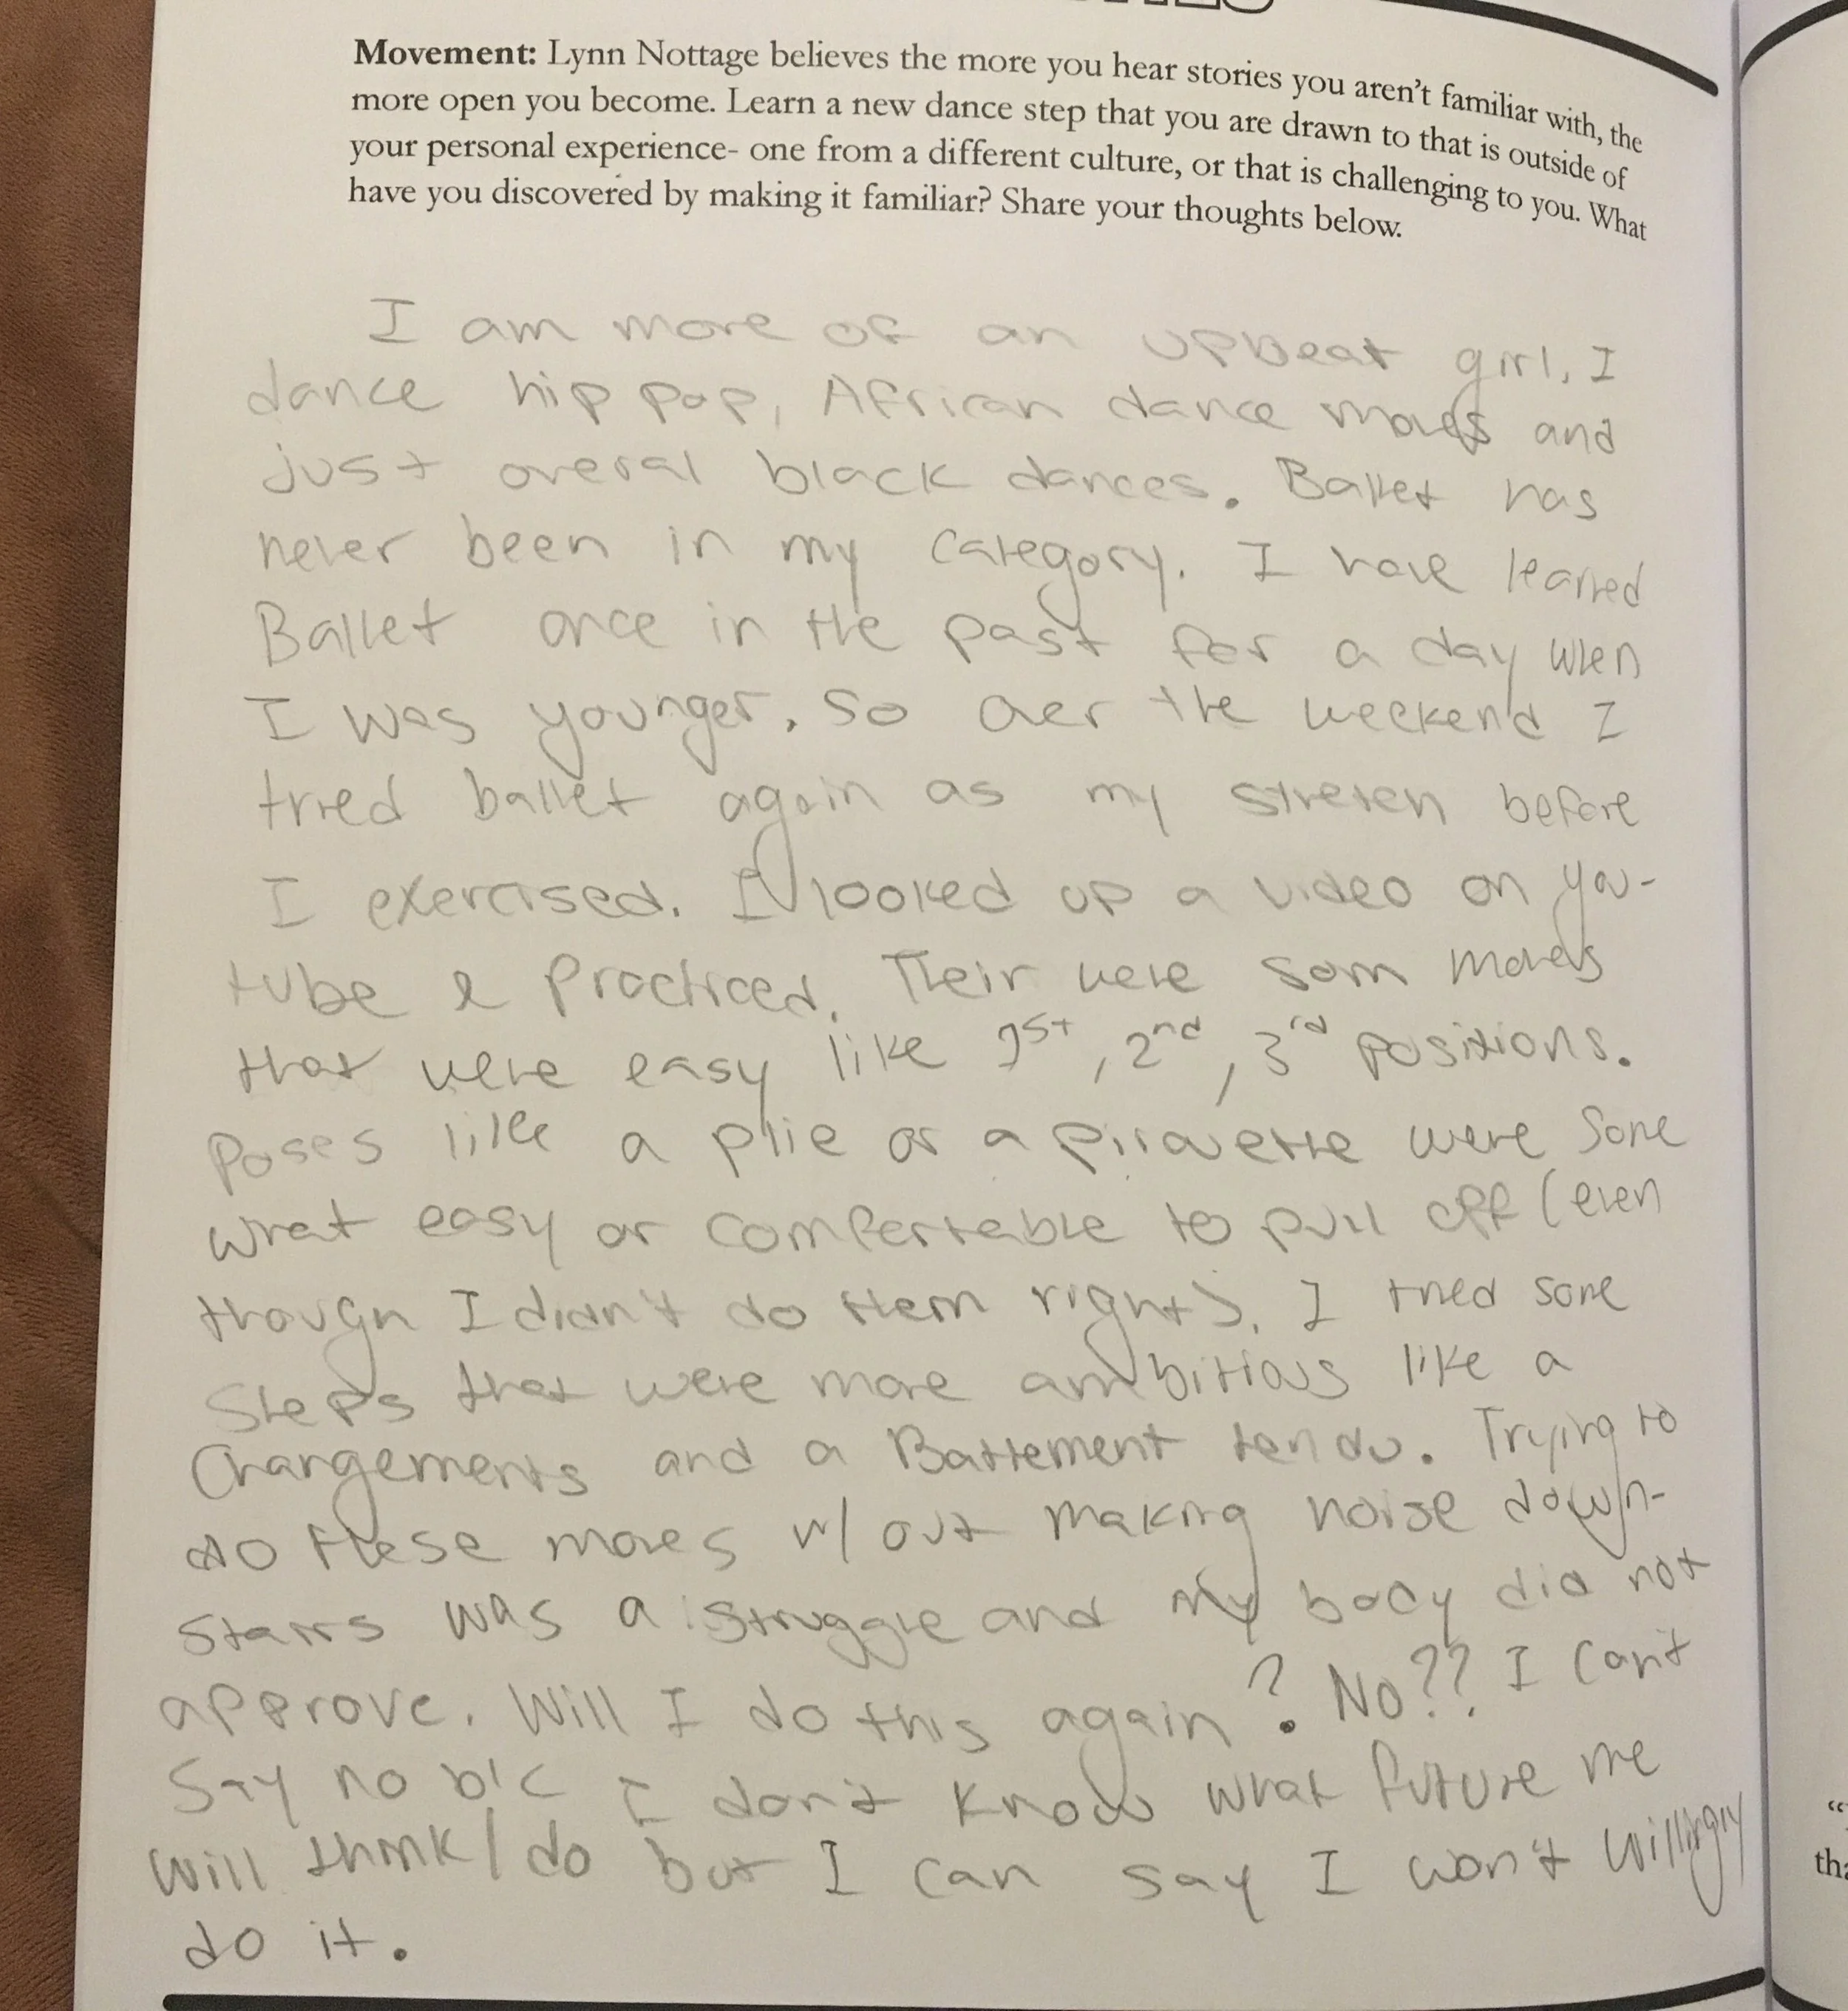 Movement: Lynn Nottage believes the more you hear stories you aren't familiar with, the
more open you become. Learn a new dance step that you are drawn to that is outside of
your personal experience- one from a different culture, or that is challenging to you. What
have you discovered by making it familiar? Share your thoughts below.
I am more of an upbeat girl, I
dance hip pop, African dance moves and
just overal black dances. Ballet has
never been in my category. I have learned
Ballet once in the past for a day when
I was younger. So over the weekend I
tried ballet again as my stretch before
I exercised. I looked up a video on you-
tube & practiced. Their were som moves
that were easy like 1st, 2nd, 3rd positions.
Poses like a plie or a pirouette were some
what easy or comfertable to pull off (even
though I didn't do them right). I tried some
steps that were more ambitious like a
Changements and a Battement tendu. Trying to
do these moves w/ out making noise down-
stairs was a struggle and my body did not
approve. Will I do this again? No?? I can't
say no b/c I don't know what future me
will think/do but I can say I won't willingly
do it.
“
tha